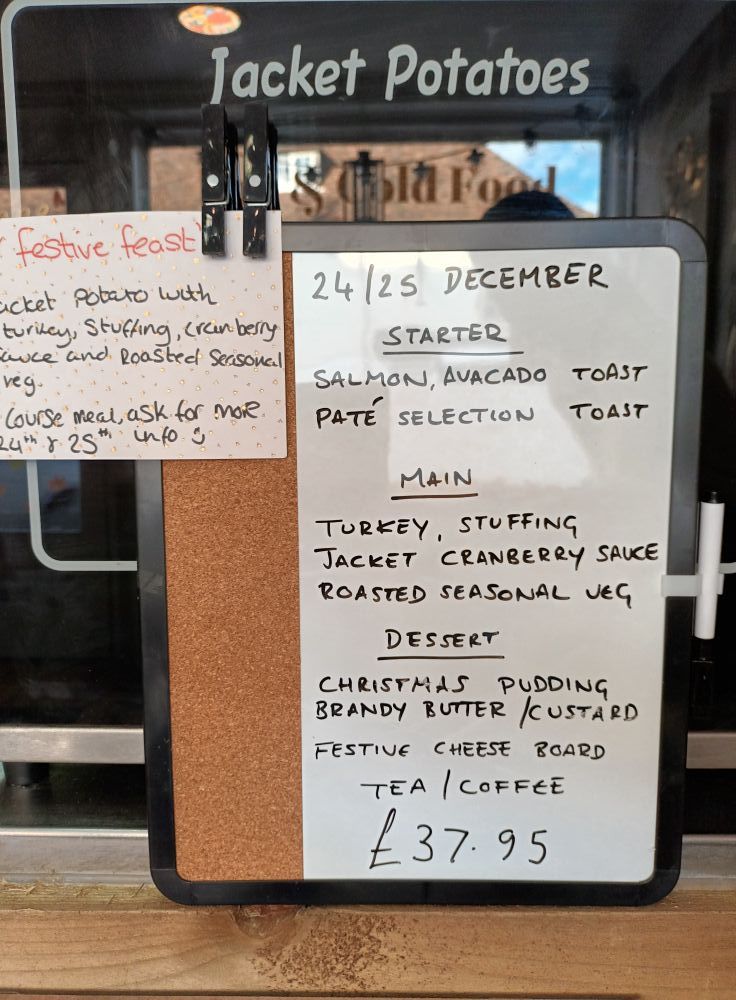 Jacket Potatoes
& Cold Food
festive feast
acket Potato with
turkey, Stuffing, Cranberry
auce and Roasted Seasonal
veg.
Course meal, ask for more
24th & 25th info
24/25 DECEMBER
STARTER
SALMON, AVACADO TOAST
PATÉ SELECTION TOAST
MAIN
TURKEY, STUFFING
JACKET CRANBERRY SAUCE
ROASTED SEASONAL VEG
DESSERT
CHRISTMAS PUDDING
BRANDY BUTTER / CUSTARD
FESTIVE CHEESE BOARD
TEA / COFFEE
£37.95